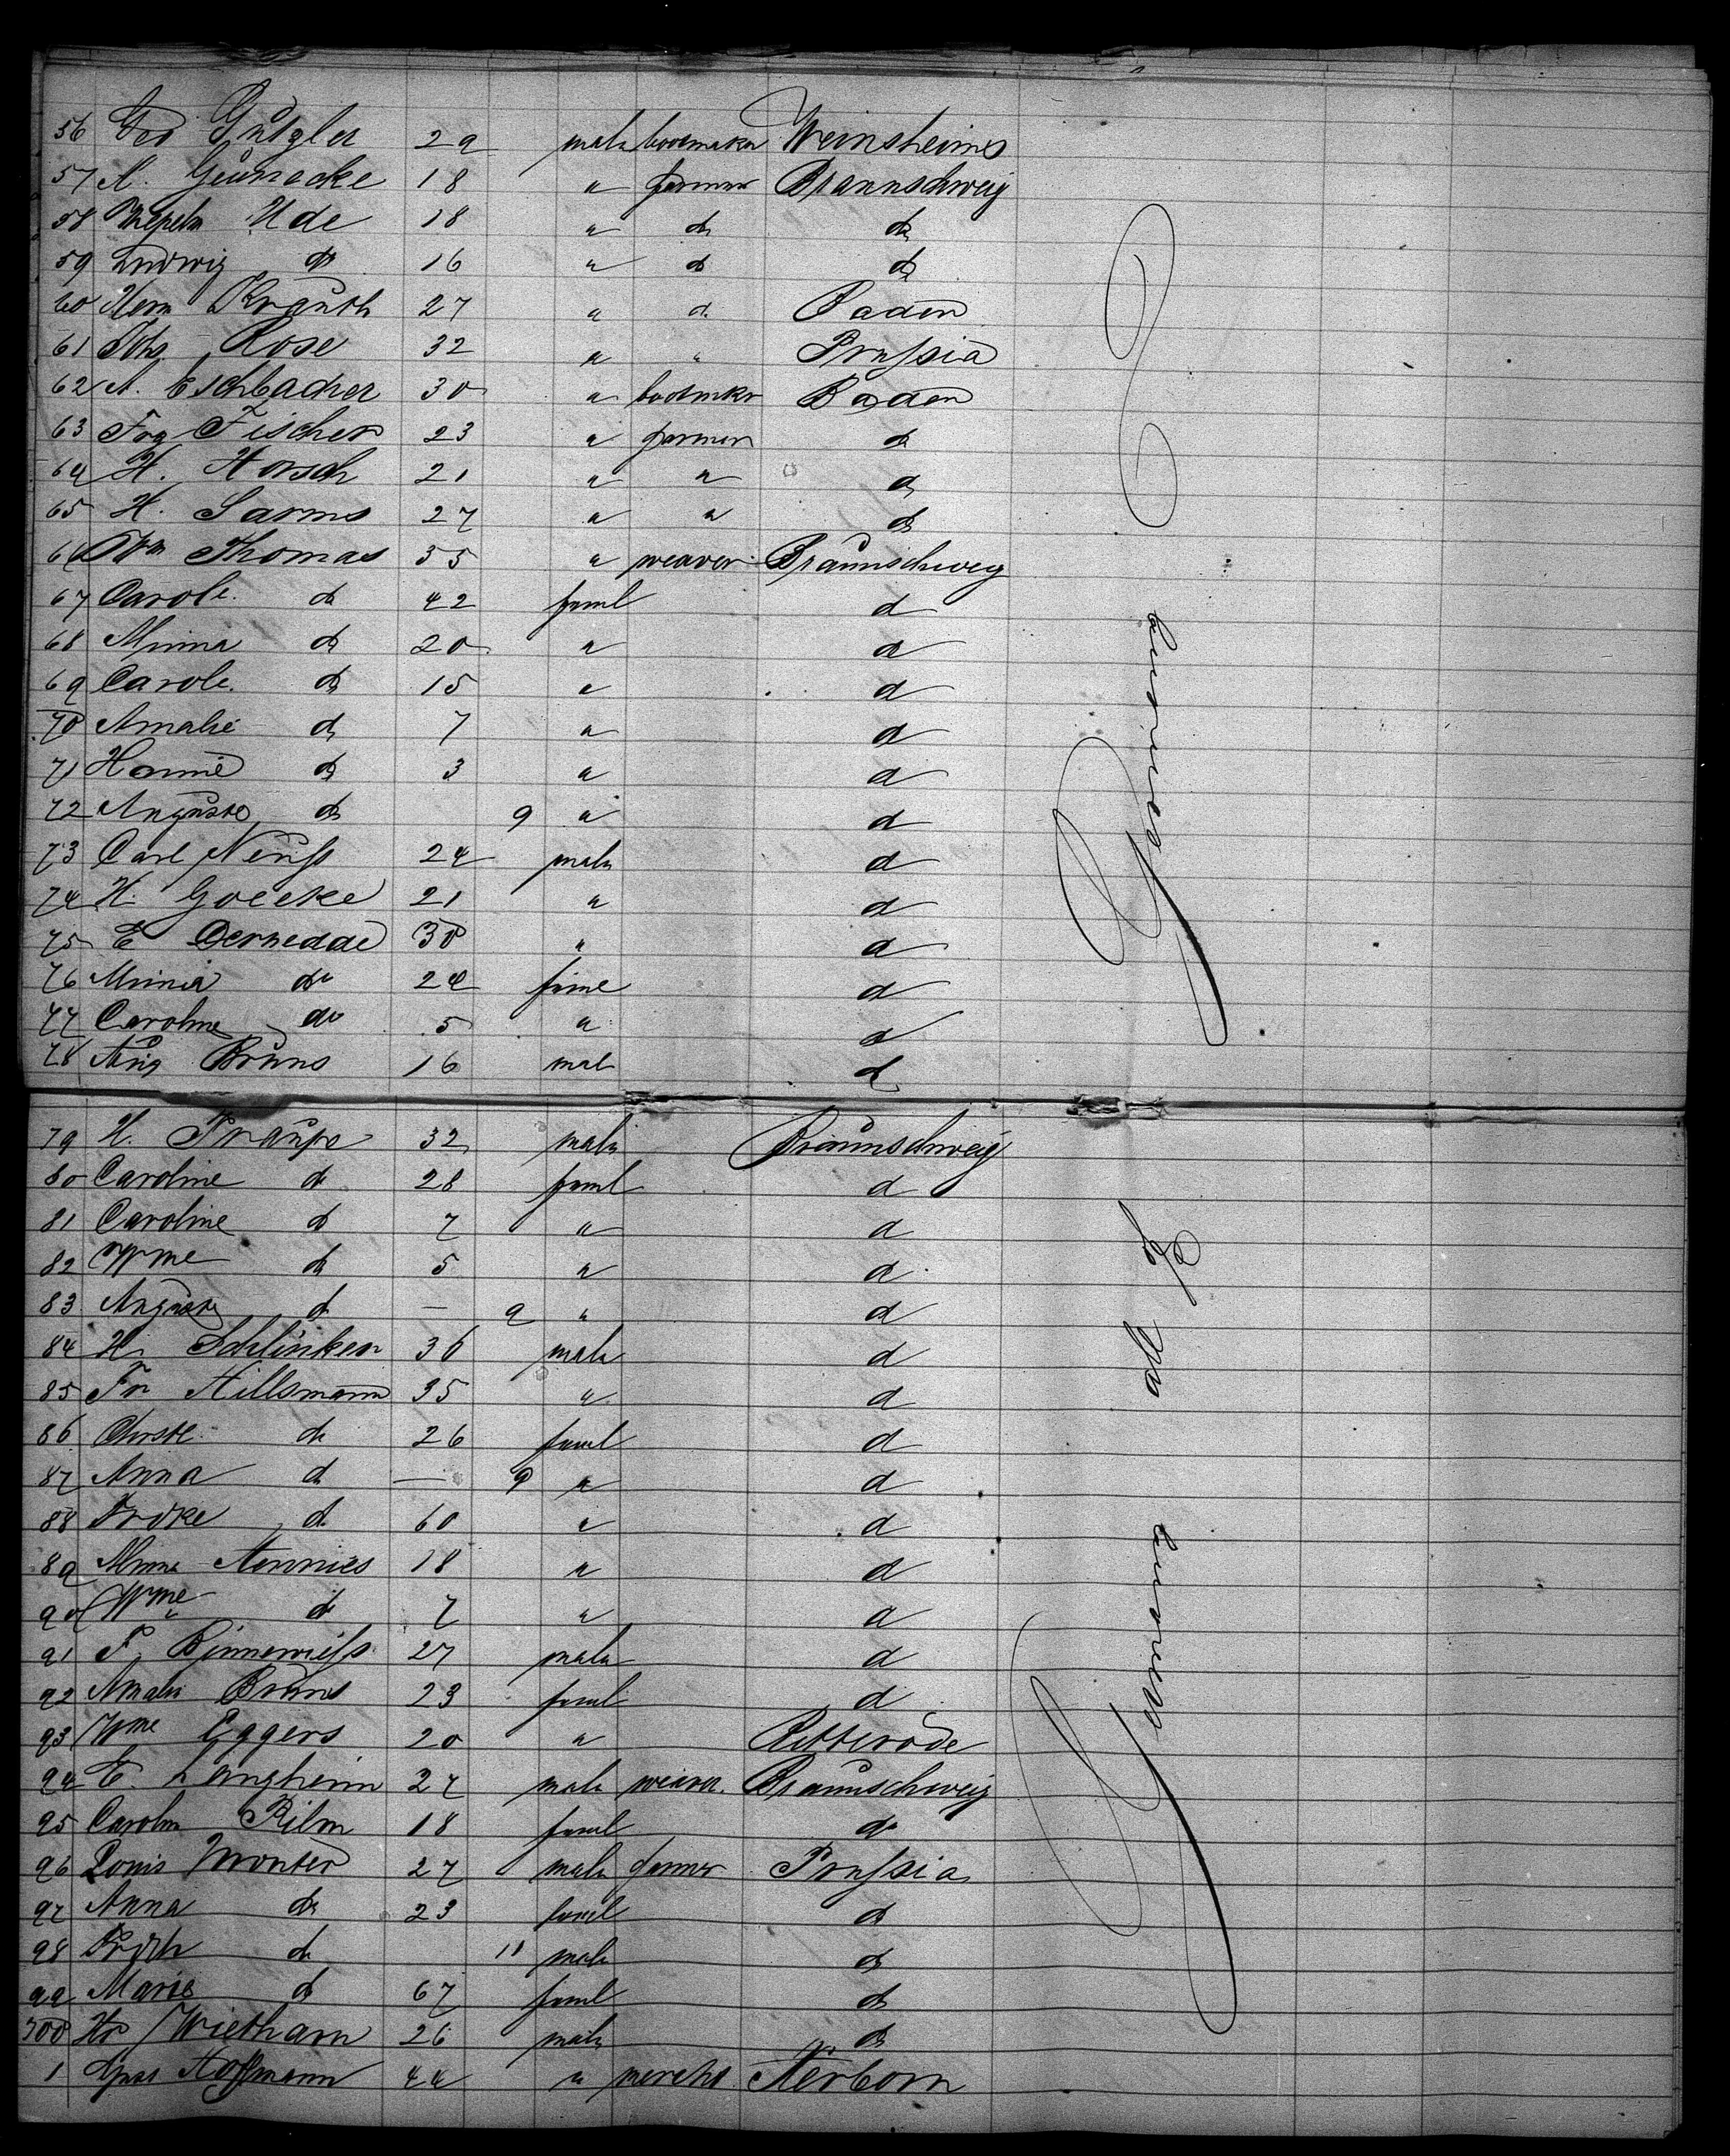 56 Geo Gutgler 29 male bootmaker Weinsheims
57 A. Geunecke 18 " farmer Braunschweig
58 Ude 18 " do do
59 Ludwig do 16 " do do
60 Herm Krauth 27 " d. Baden
61 Joh. Rose 32 " " Prussia
62 A. Eschbacher 30 " bootmkr Baden
63 Frz Fischer 23 " farmer do
64 H. Horsch 21 " " do
65 H. Sarms 27 " " do
66 Wm Thomas 35 " weaver Braunschweig
67 Carole. do 42 feml d
68 Minna do 20 " d
69 Carole. do 15 " d
70 Amalie do 7 " d
71 Hannie do 3 " d
72 Auguste do 9 " d
73 Carl Neuss 24 male d
74 H. Goecke 21 " d
75 E Dernedde 30 " d
76 Minna do 24 feme d
77 Caroline do 5 " d
78 Aug Bruns 16 mal d
79 H. 32 male Braunschweig
80 Caroline do 28 feml d
81 Caroline do 7 " d
82 Wme do 5 " d
83 Auguste d — 9 " d
84 H. Schlinker 36 male d
85 Fr Hillsmann 35 " d
86 Christe. do 26 feml d
87 Anna d — 9 " d
88 Fr̄dke d. 60 " d
89 Minna Tonnies 18 " d
90 Wme do 7 " d
91 F. Binnewiess 27 male d
92 Amalie Bruns 23 feml d
93 Wme Eggers 20 " Ritterode
94 E. Langheim 27 male weaver. Braunschweig
95 Carolin Rilm 18 feml do
96 Louis Wronter 27 male farmer Prussia
97 Anna do 23 feml do
98 do 11 male do
99 Marie d 67 feml do
300 Hr Wietharn 26 male do
1 Hoffmann 44 " mercht Herborn